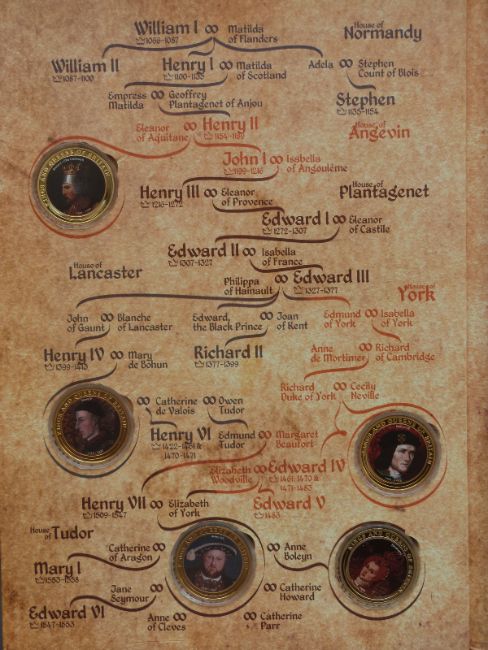 William I
1066-1087
Matilda
of Flanders
House of
Normandy
William II
1087-1100
Henry I
1100-1135
Matilda
of Scotland
Adela
Stephen
Count of Blois
Empress
Matilda
Geoffrey
Plantagenet of Anjou
Stephen
1135-1154
Eleanor
of Aquitaine
Henry II
1154-1189
House of
Angevin
John I
1199-1216
Isabella
of Angoulême
Henry III
1216-1272
Eleanor
of Provence
House of
Plantagenet
Edward I
1272-1307
Eleanor
of Castile
Edward II
1307-1327
Isabella
of France
House of
Lancaster
Philippa
of Hainault
Edward III
1327-1377
House of
York
John
of Gaunt
Blanche
of Lancaster
Edward,
the Black Prince
Joan
of Kent
Edmund
of York
Isabella
of York
Henry IV
1399-1413
Mary
de Bohun
Richard II
1377-1399
Anne
de Mortimer
Richard
of Cambridge
Richard
Duke of York
Cecily
Neville
Catherine
de Valois
Owen
Tudor
Henry VI
1422-1461 &
1470-1471
Edmund
Tudor
Margaret
Beaufort
KINGS AND QUEENS OF BRITAIN
Elizabeth
Woodville
Edward IV
1461-1470 &
1471-1483
Henry VII
1509-1547
Elizabeth
of York
Edward V
1483
House of
Tudor
Catherine
of Aragon
Anne
Boleyn
Mary I
1553-1558
Jane
Seymour
Catherine
Howard
Edward VI
1547-1553
Anne
of Cleves
Catherine
Parr